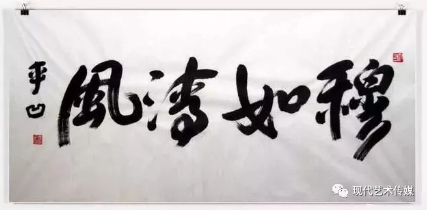 穆如清風
平凹
现代艺术传媒